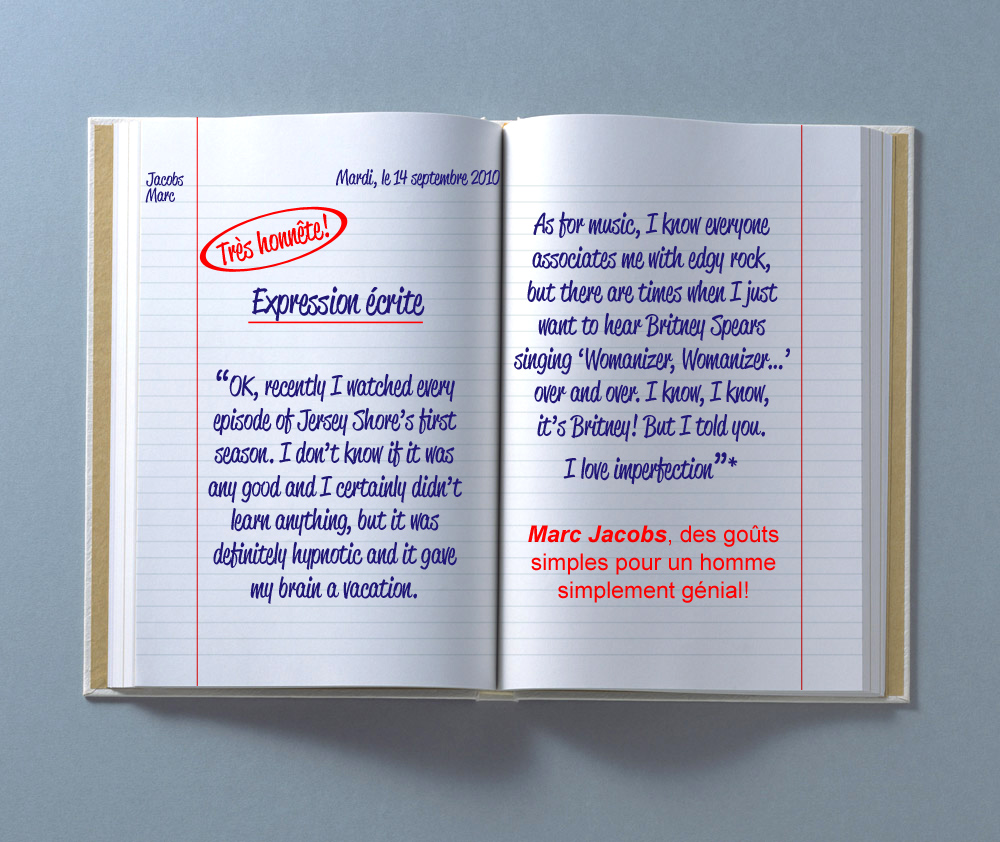 Jacobs
Marc
Mardi, le 14 septembre 2010
Très honnête!
Expression écrite
“OK, recently I watched every
episode of Jersey Shore's first
season. I don't know if it was
any good and I certainly didn't
learn anything, but it was
definitely hypnotic and it gave
my brain a vacation.
As for music, I know everyone
associates me with edgy rock,
but there are times when I just
want to hear Britney Spears
singing ‘Womanizer, Womanizer...’
over and over. I know, I know,
it's Britney! But I told you.
I love imperfection”*
Marc Jacobs, des goûts
simples pour un homme
simplement génial!